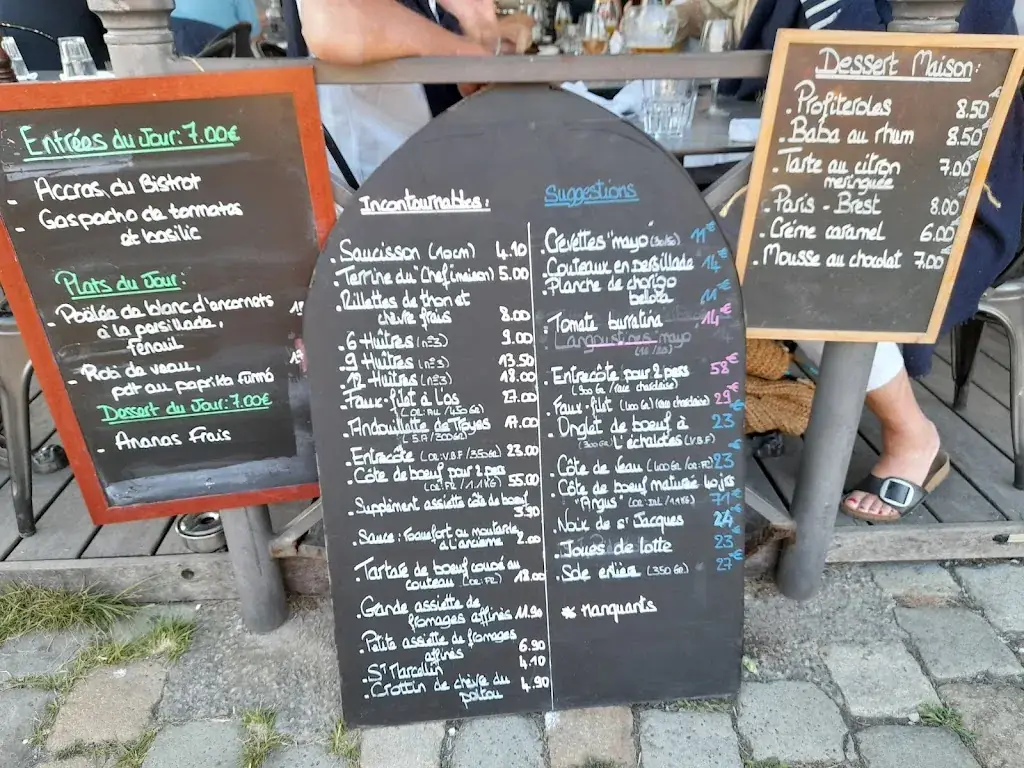 Entrées du Jour: 7.00€
- Accras du Bistrot
- Gaspacho de tomates
et basilic
Plats du Jour:
- Poêlée de blanc d'encornets
à la persillade,
Fenouil
- Roti de veau,
pdt au paprika fumé
Dessert du Jour: 7.00€
- Ananas Frais
Incontournables:
. Saucisson (10cm) 4.10
. Terrine du "Chef" (maison) 5.00
. Rillettes de thon et
chèvre frais 8.00
. 6 Huîtres (n°3) 9.00
. 9 Huîtres (n°3) 13.50
. 12 Huîtres (n°3) 18.00
. Faux-filet à l'os 27.00
. Andouillette de Troyes 17.00
(5A/300Gr)
. Entrecôte (OR:V.B.F/350Gr) 23.00
. Côte de boeuf pour 2 pers
55.00
. Supplément assiette côte de boeuf
3.90
. Sauce: Roquefort ou moutarde
à l'ancienne 2.00
. Tartare de boeuf coupé au
couteau 18.00
. Grande assiette de
fromages affinés 11.90
. Petite assiette de fromages
affinés 6.90
. St Marcellin 4.10
. Crottin de chèvre du
poitou 4.90
Suggestions
. Crevettes "mayo" 11€
. Couteaux en persillade 14€
. Planche de chorizo
bellota 11€
. Tomate burratina 14€
Langoustines mayo
. Entrecôte pour 2 pers 58€
. Faux-filet 29€
. Onglet de boeuf à 23
(300Gr) L'échalotes (V.B.F)
. Côte de veau 23€
. Côte de boeuf maturée 40 jrs
"Angus" 71€
. Noix de St Jacques 24€
. Joues de lotte 23
. Sole entière (350Gr) 27€
* Manquants
Dessert Maison:
. Profiteroles 8.50
. Baba au rhum 8.50
. Tarte au citron 7.00
meringuée
. Paris-Brest 8.00
. Crème caramel 6.00
. Mousse au chocolat 7.00